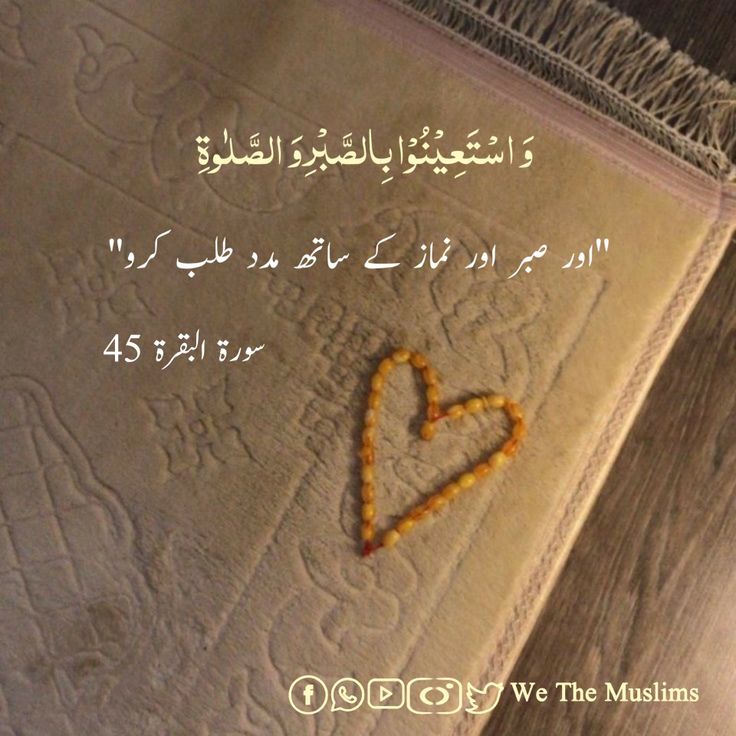 وَاسْتَعِيْنُوْا بِالصَّبْرِ وَالصَّلٰوةِ
"اور صبر اور نماز کے ساتھ مدد طلب کرو"
سورۃ البقرۃ 45
We The Muslims